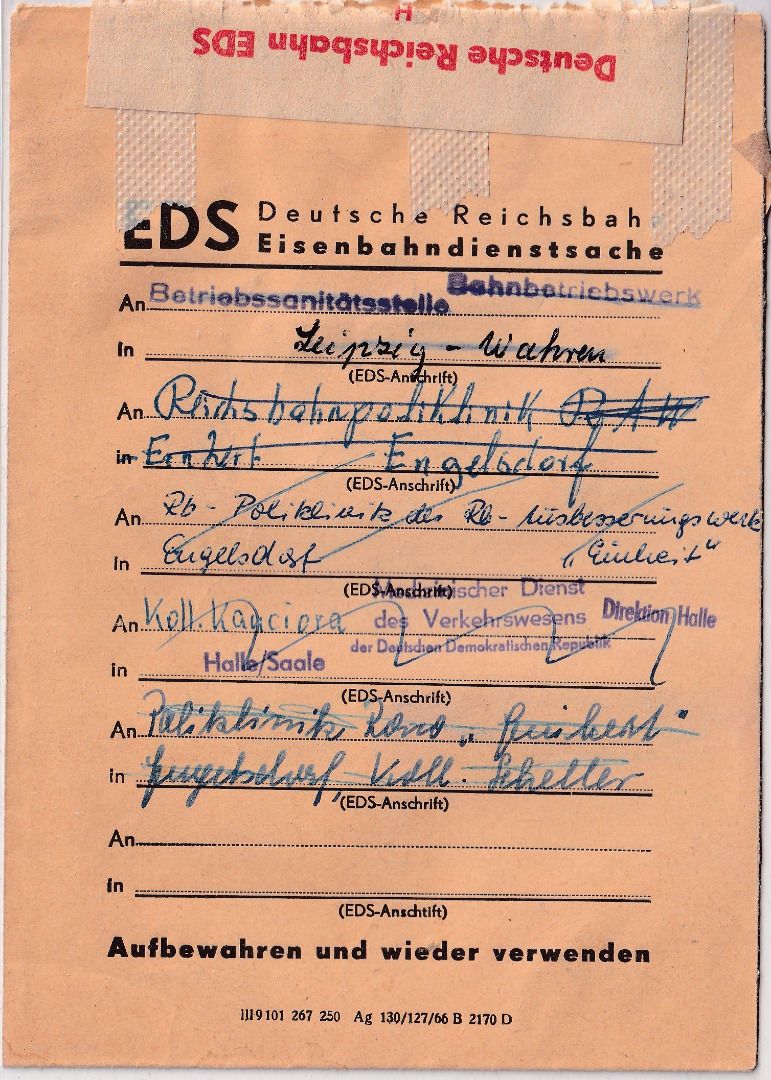 H
Deutsche Reichsbahn EDS
EDS Deutsche Reichsbah
Eisenbahndienstsache
An Betriebssanitätsstelle Bahnbetriebswerk
In Leipzig - Wahren
(EDS-Anschrift)
An Reichsbahnpoliklinik RAW
in Engelsdorf
(EDS-Anschrift)
An Rb - Poliklinik des Rb - Ausbesserungswerk
In Engelsdorf "Einheit"
(EDS-Anschrift)
Medizinischer Dienst
An Koll. Kanciora des Verkehrswesens Direktion Halle
der Deutschen Demokratischen Republik
in Halle/Saale
(EDS-Anschrift)
An Poliklinik "Einheit"
in Engelsdorf, Koll. Scheller
(EDS-Anschrift)
An
In
(EDS-Anschtift)
Aufbewahren und wieder verwenden
III 9 101 267 250 Ag 130/127/66 B 2170 D